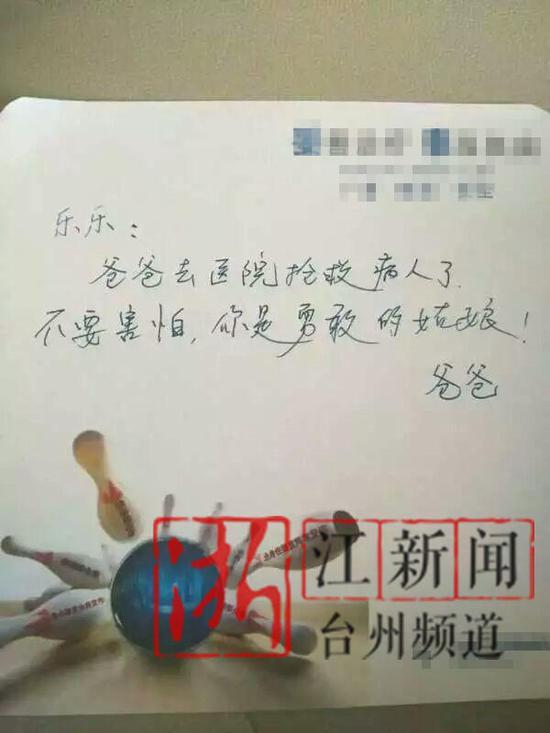 乐乐：
爸爸去医院抢救病人了.
不要害怕,你是勇敢的姑娘!
爸爸
浙江新闻
台州频道